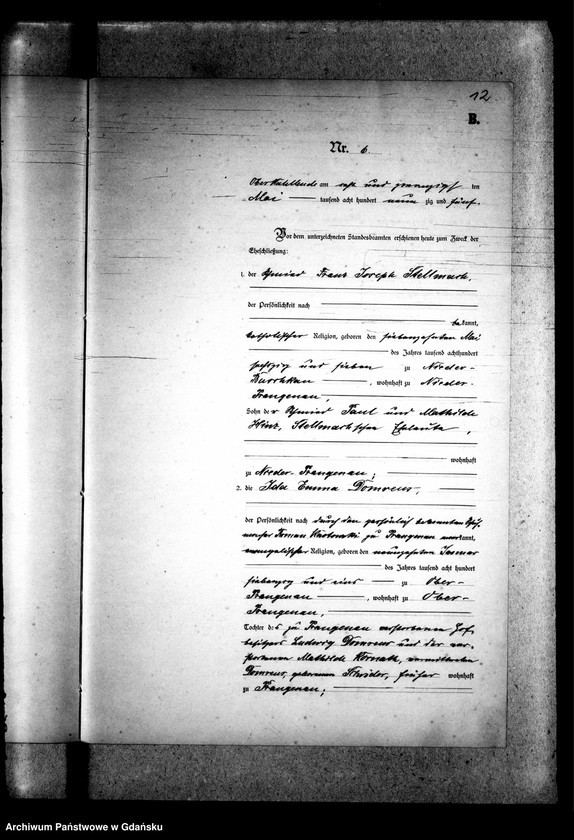 12
B.
Nr. 6.
am sechs und zwanzigsten
Mai tausend acht hundert neun zig und fünf.
Vor dem unterzeichneten Standesbeamten erschienen heute zum Zweck der
Eheschließung:
1. der Schmied Franz Joseph Stellmach,
der Persönlichkeit nach
bekannt,
katholischer Religion, geboren den siebenzehnten Mai
des Jahres tausend achthundert
sechszig und sieben zu Nieder-
, wohnhaft zu Nieder-
Prangenau,
Sohn der Schmied Paul und Mathilde
Hinz, Eheleute,
wohnhaft
zu Nieder-Prangenau;
2. die Ida Emma
der Persönlichkeit nach durch den persönlich bekannten
zu Prangenau anerkannt,
evangelischer Religion, geboren den neunzehnten Januar
des Jahres tausend acht hundert
siebenzig und eins zu Ober-
Prangenau, wohnhaft zu Ober-
Prangenau,
Tochter des zu Prangenau verstorbenen Hof-
besitzers Ludwig und der ver-
storbenen Mathilde
geborenen früher wohnhaft
zu Prangenau;
Archiwum Państwowe w Gdańsku